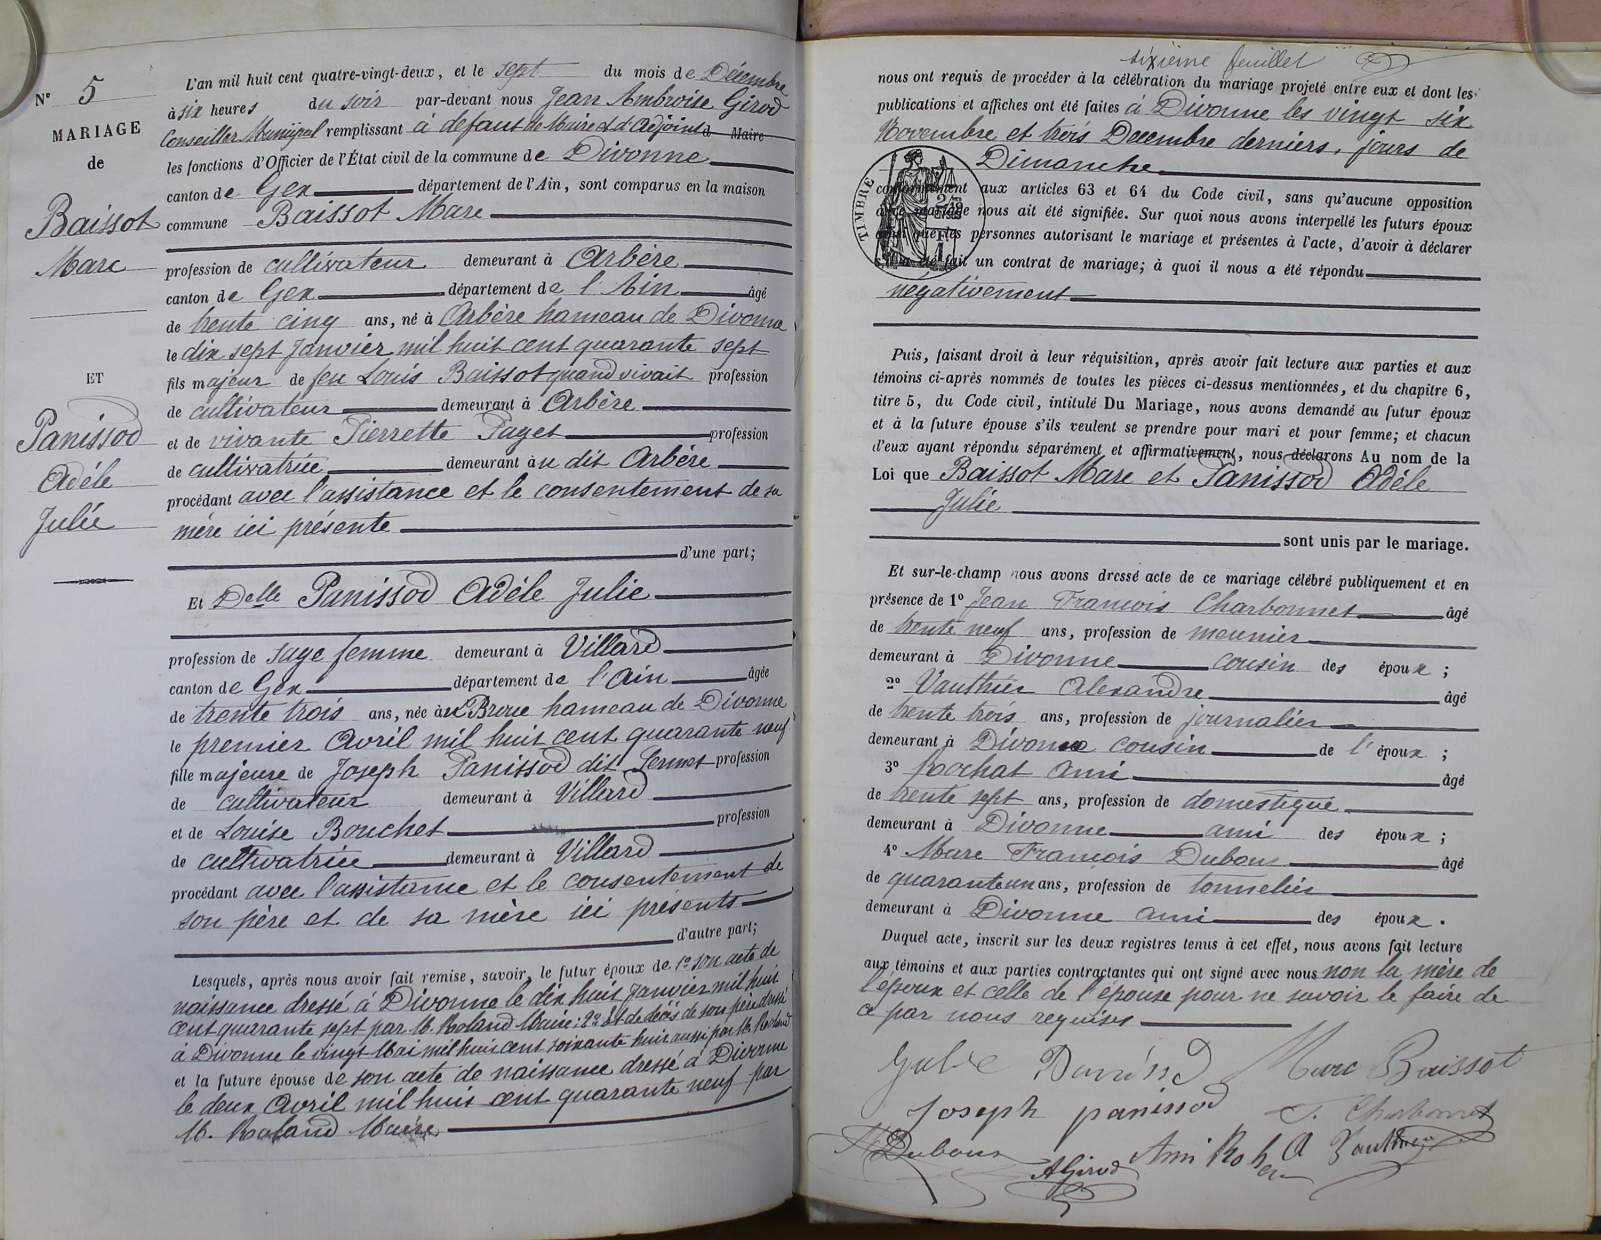 N° 5
MARIAGE
de
Baissot
Marc
ET
Panissod
Adèle
Julie
L'an mil huit cent quatre-vingt-deux, et le sept du mois de Décembre
à six heures du soir par-devant nous Jean Ambroise Girod
Conseiller Municipal remplissant à défaut de Maire et d'adjoint d Maire
les fonctions d'Officier de l'État civil de la commune de Divonne
canton de Gex département de l'Ain, sont comparus en la maison
commune Baissot Marc
profession de cultivateur demeurant à Arbère
canton de Gex département de l'Ain âgé
de trente cinq ans, né à Arbère hameau de Divonne
le dix sept Janvier mil huit cent quarante sept
fils majeur de feu Louis Baissot quand vivait profession
de cultivateur demeurant à Arbère
et de vivante Pierrette Paget profession
de cultivatrice demeurant au dit Arbère
procédant avec l'assistance et le consentement de sa
mère ici présente
d'une part;
Et Delle Panissod Adèle Julie
profession de sage femme demeurant à Villard
canton de Gex département de l'Ain âgée
de trente trois ans, née à Broue hameau de Divonne
le premier Avril mil huit cent quarante neuf
fille majeure de Joseph Panissod dit profession
de cultivateur demeurant à Villard
et de Louise Bouchet profession
de cultivatrice demeurant à Villard
procédant avec l'assistance et le consentement de
son père et de sa mère ici présents
d'autre part;
Lesquels, après nous avoir fait remise, savoir, le futur époux de 1° son acte de
naissance dressé à Divonne le dix huit Janvier mil huit
cent quarante sept par M. Roland Maire; 2° et de décès de son père dressé
à Divonne le vingt Mai mil huit cent soixante huit aussi par M. Roland
et la future épouse de son acte de naissance dressé à Divonne
le deux Avril mil huit cent quarante neuf par
M. Roland Maire
sixième feuillet
nous ont requis de procéder à la célébration du mariage projeté entre eux et dont les
publications et affiches ont été faites à Divonne les vingt six
Novembre et trois Decembre derniers, jours de
Dimanche
TIMBRE
conformément aux articles 63 et 64 du Code civil, sans qu'aucune opposition
audit mariage nous ait été signifiée. Sur quoi nous avons interpellé les futurs époux
ainsi que les personnes autorisant le mariage et présentes à l'acte, d'avoir à déclarer
s'il a été fait un contrat de mariage; à quoi il nous a été répondu
négativement
Puis, faisant droit à leur réquisition, après avoir fait lecture aux parties et aux
témoins ci-après nommés de toutes les pièces ci-dessus mentionnées, et du chapitre 6,
titre 5, du Code civil, intitulé Du Mariage, nous avons demandé au futur époux
et à la future épouse s'ils veulent se prendre pour mari et pour femme; et chacun
d'eux ayant répondu séparément et affirmativement, nous déclarons Au nom de la
Loi que Baissot Marc et Panissod Adèle
Julie
sont unis par le mariage.
Et sur-le-champ nous avons dressé acte de ce mariage célébré publiquement et en
présence de 1° Jean François Charbonnet âgé
de trente neuf ans, profession de meunier
demeurant à Divonne cousin des époux;
2° Vauthier Alexandre âgé
de trente trois ans, profession de journalier
demeurant à Divonne cousin de l'époux;
3° Rochat Ami âgé
de trente sept ans, profession de domestique
demeurant à Divonne ami des époux;
4° Marc François Dubout âgé
de quarante un ans, profession de tonnelier
demeurant à Divonne ami des époux.
Duquel acte, inscrit sur les deux registres tenus à cet effet, nous avons fait lecture
aux témoins et aux parties contractantes qui ont signé avec nous non la mère de
l'époux et celle de l'épouse pour ne savoir le faire de
ce par nous requises
Marc Baissot
Joseph panissod J. Charbonnet
Dubout AGirod Ami Roh A Vauthier